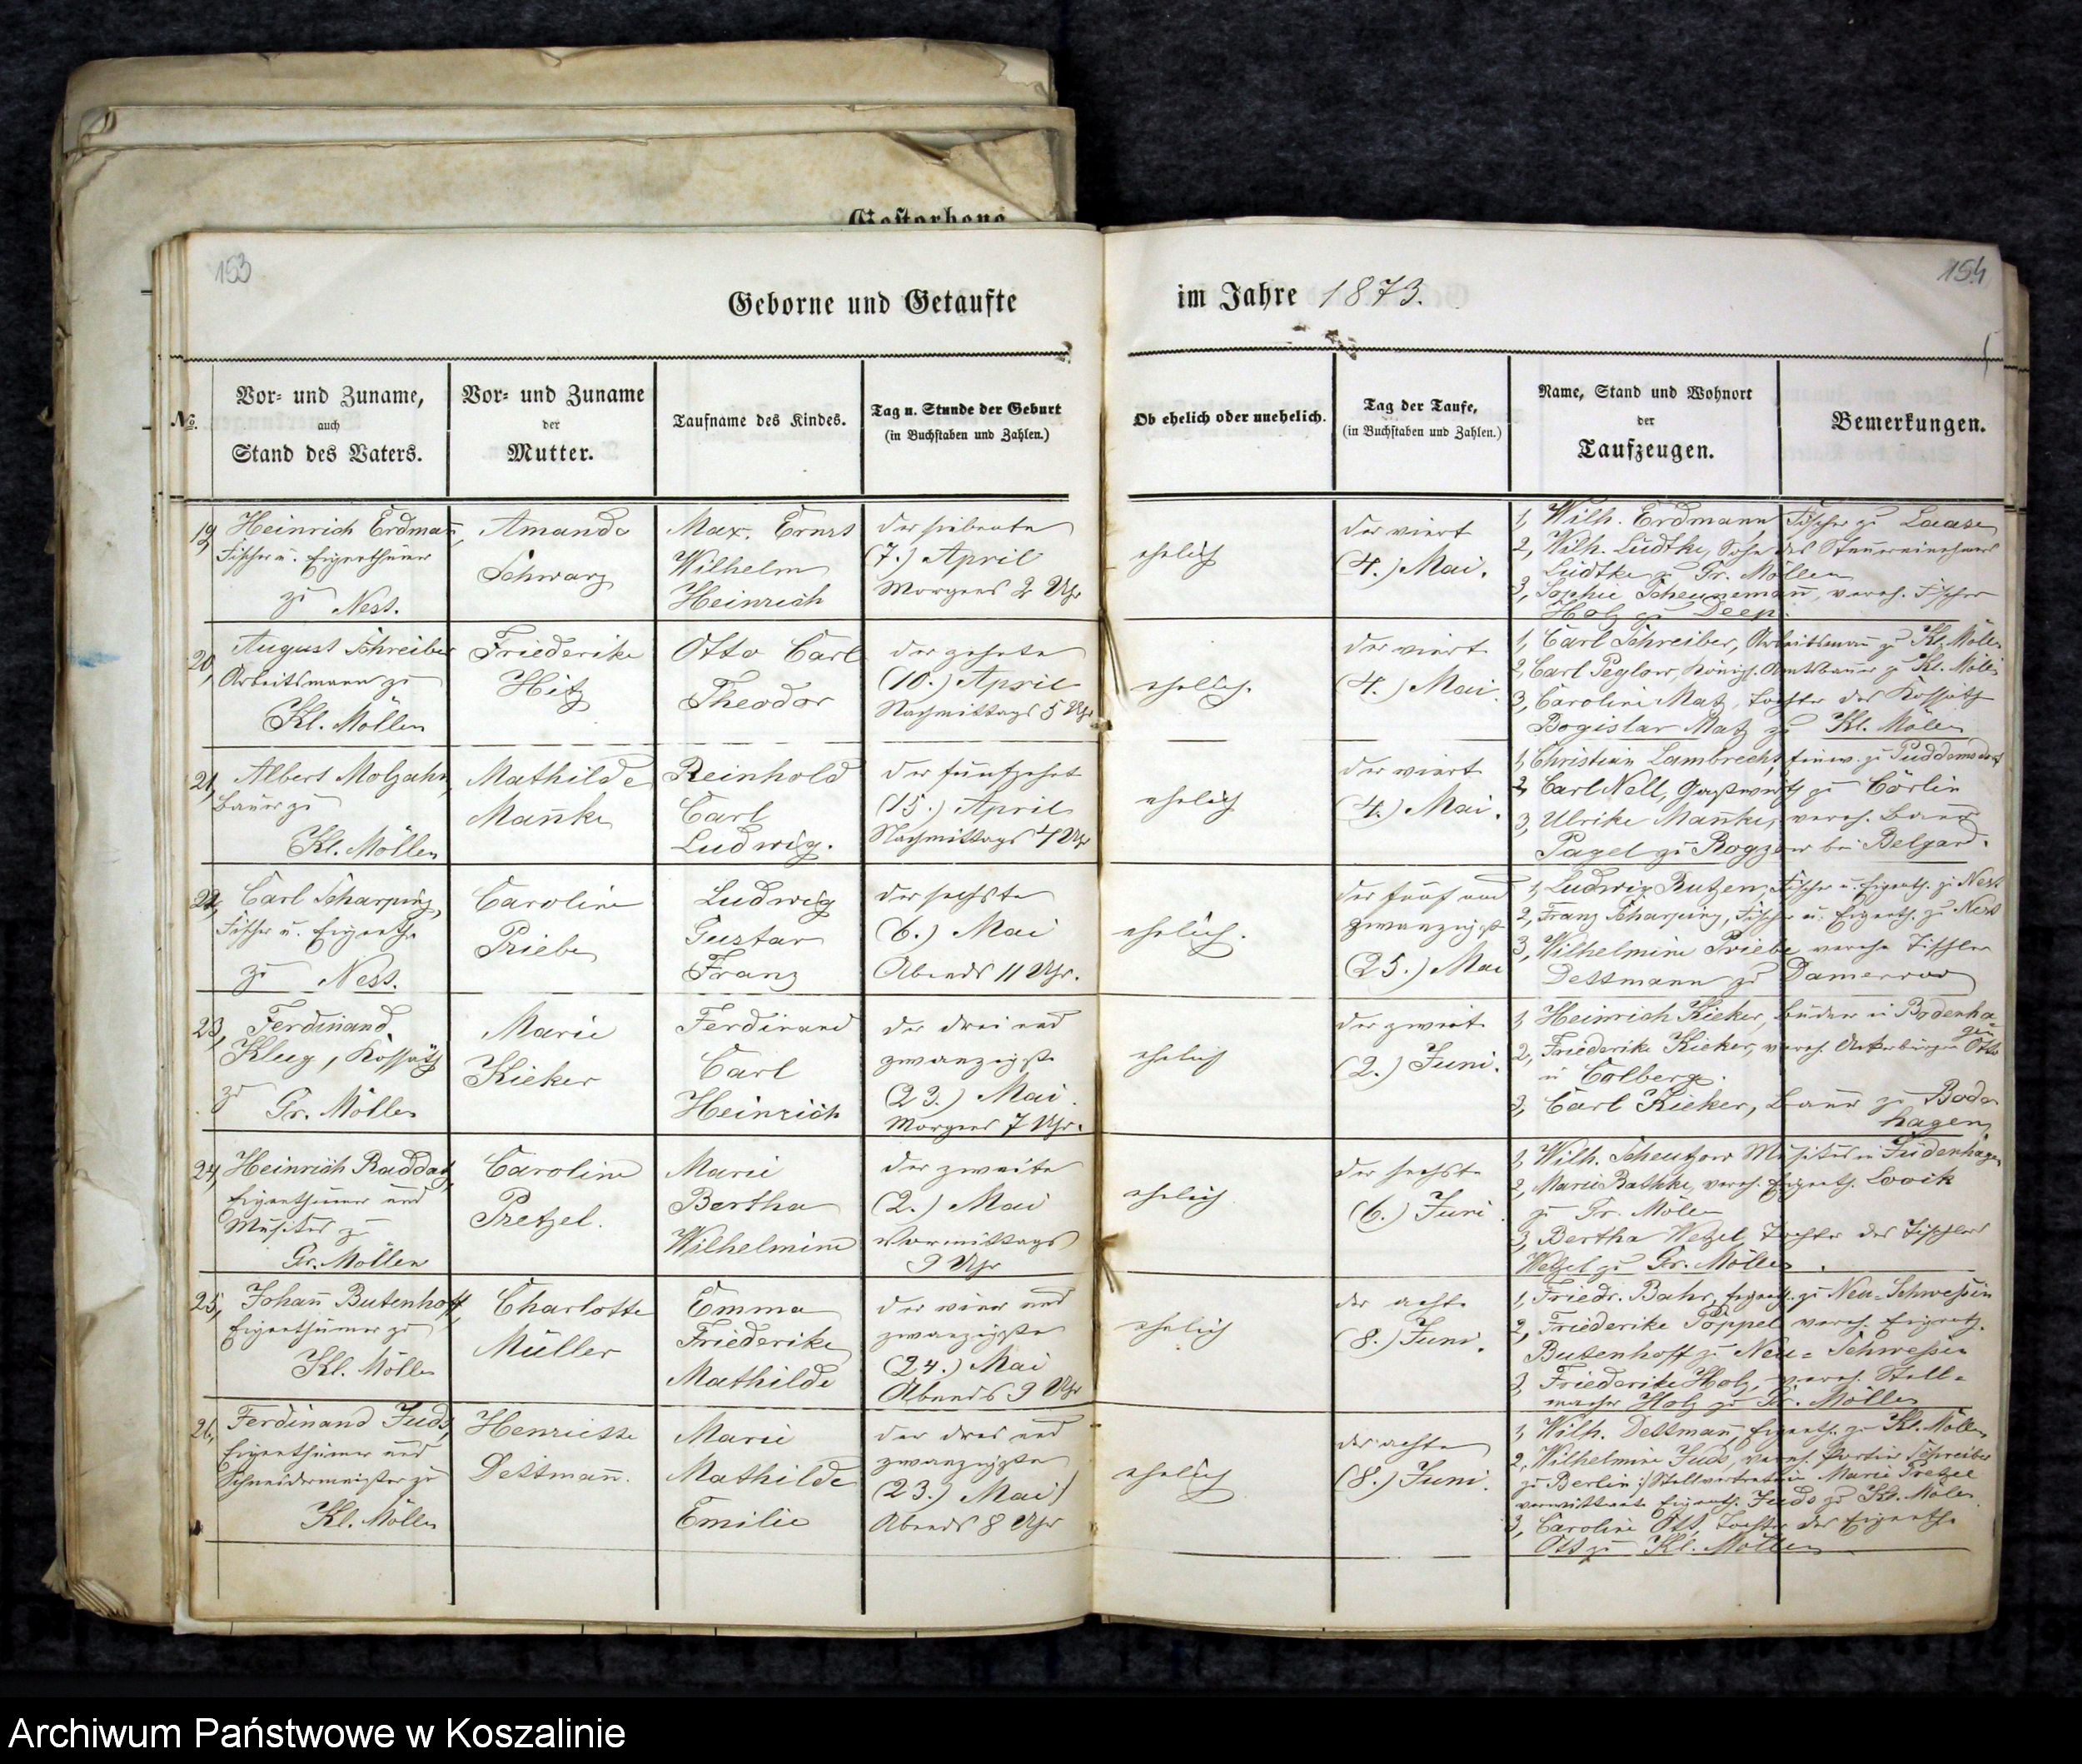 Gestorbene
153
154
Geborne und Getaufte
im Jahre 1873.
No.
Vor- und Zuname,
auch
Stand des Vaters.
Vor- und Zuname
der
Mutter.
Taufname des Kindes.
Tag u. Stunde der Geburt
(in Buchstaben und Zahlen.)
Ob ehelich oder unehelich.
Tag der Taufe,
(in Buchstaben und Zahlen.)
Name, Stand und Wohnort
der
Taufzeugen.
Bemerkungen.
19,
Heinrich Erdmañ,
Fischer u. Eigenthümer
zu Nest.
Amanda
Schwarz
Max. Ernst
Wilhelm
Heinrich
der siebente
(7.) April
Morgens 2 Uhr
ehelich
der vierte
(4.) Mai.
1, Wilh. Erdmann, Fischer zu Laase
2, Wilh. Lüdtke, Sohn des Steuereinehmers
Lüdtke zu Gr. Möllen
3, Sophie Scheunemañ, vereh. Fischer
Holz zu Deep.
20,
August Schreiber
Arbeitsmann zu
Kl. Möllen
Friederike
Hitz
Otto Carl
Theodor
der zehnte
(10.) April
Nachmittags 5 Uhr
ehelich.
der vierte
(4.) Mai.
1, Carl Schreiber, Arbeitsmann zu Kl. Möllen
2, Carl Peglow, Königl. Amtsbauer zu Kl. Möllen
3, Caroline Matz, Tochter des Kossath
Bogislav Matz zu Kl. Möllen
21,
Albert Molzahn,
Bauer zu
Kl. Möllen
Mathilde
Mañke
Reinhold
Carl
Ludwig.
der fünfzehnte
(15.) April
Nachmittags 4 Uhr
ehelich
der vierte
(4.) Mai.
1, Christian Lambrecht, Einw. zu Puddemsdorf
2, Carl Nell, Gastwirth zu Cörlin
3, Ulrike Mañke, vereh. Bauer
Pagel zu Rogzow bei Belgard.
22,
Carl Scharping,
Fischer u. Eigenth.
zu Nest.
Caroline
Priebe
Ludwig
Gustav
Franz
der sechste
(6.) Mai
Abends 11 Uhr.
ehelich.
der fünf und
zwanzigste
(25.) Mai
1, Ludwig Rutzen, Fischer u. Eigenth. zu Nest
2, Franz Scharping, Fischer u. Eigenth. zu Nest
3, Wilhelmine Priebe vereh. Tischler
Dettmann zu Damerow
23,
Ferdinand
Klug, Kossäth
zu Gr. Möllen
Marie
Kieker
Ferdinand
Carl
Heinrich
der drei und
zwanzigste
(23.) Mai.
Morgens 7 Uhr.
ehelich
der zweite
(2.) Juni.
1, Heinrich Kieker, Büdner in Bodenha-
gen
2, Friederike Kieker, vereh. Ackerbürger Otto
in Colberg.
3, Carl Kieker, Bauer zu Boden-
hagen
24,
Heinrich Raddatz,
Eigenthümer und
Musikus zu
Gr. Möllen
Caroline
Pretzel.
Marie
Bertha
Wilhelmine
der zweite
(2.) Mai
Vormittags
9 Uhr
ehelich
der sechste
(6.) Juni.
1, Wilh. Scheutzow Musikus in Fudenhagen
2, Marie Rathke, vereh. Eigenth. Loock
zu Gr. Möllen
3, Bertha Wetzel Tochter des Tischlers
Wetzel zu Gr. Möllen.
25,
Johañ Butenhoff,
Eigenthümer zu
Kl. Möllen
Charlotte
Müller
Emma
Friederike
Mathilde
der vier und
zwanzigste
(24.) Mai
Abends 9 Uhr
ehelich
der achte
(8.) Juni.
1, Friedr. Bahr, Eigenth. zu Neu-Schwessin
2, Friederike Poppel vereh. Eigenth.
Butenhoff zu Neu-Schwessin
3, Friederike Holz, vereh. Stell-
macher Holz zu Gr. Möllen
26,
Ferdinand Juds,
Eigenthümer und
Schneidermeister zu
Kl. Möllen
Henriette
Dettmañ.
Marie
Mathilde
Emilie
der drei und
zwanzigste
(23.) Mai
Abends 8 Uhr
ehelich
der achte
(8.) Juni.
1, Wilh. Dettmañ, Eigenth. zu Kl. Möllen
2, Wilhelmine Juds, vereh. Portier Schreiber
zu Berlin; Stellvertreterin Marie Pretzel
verwittwete Eigenth. Juds zu Kl. Möllen
3, Caroline Ott, Tochter des Eigenth.
Ott zu Kl. Möllen
Archiwum Państwowe w Koszalinie